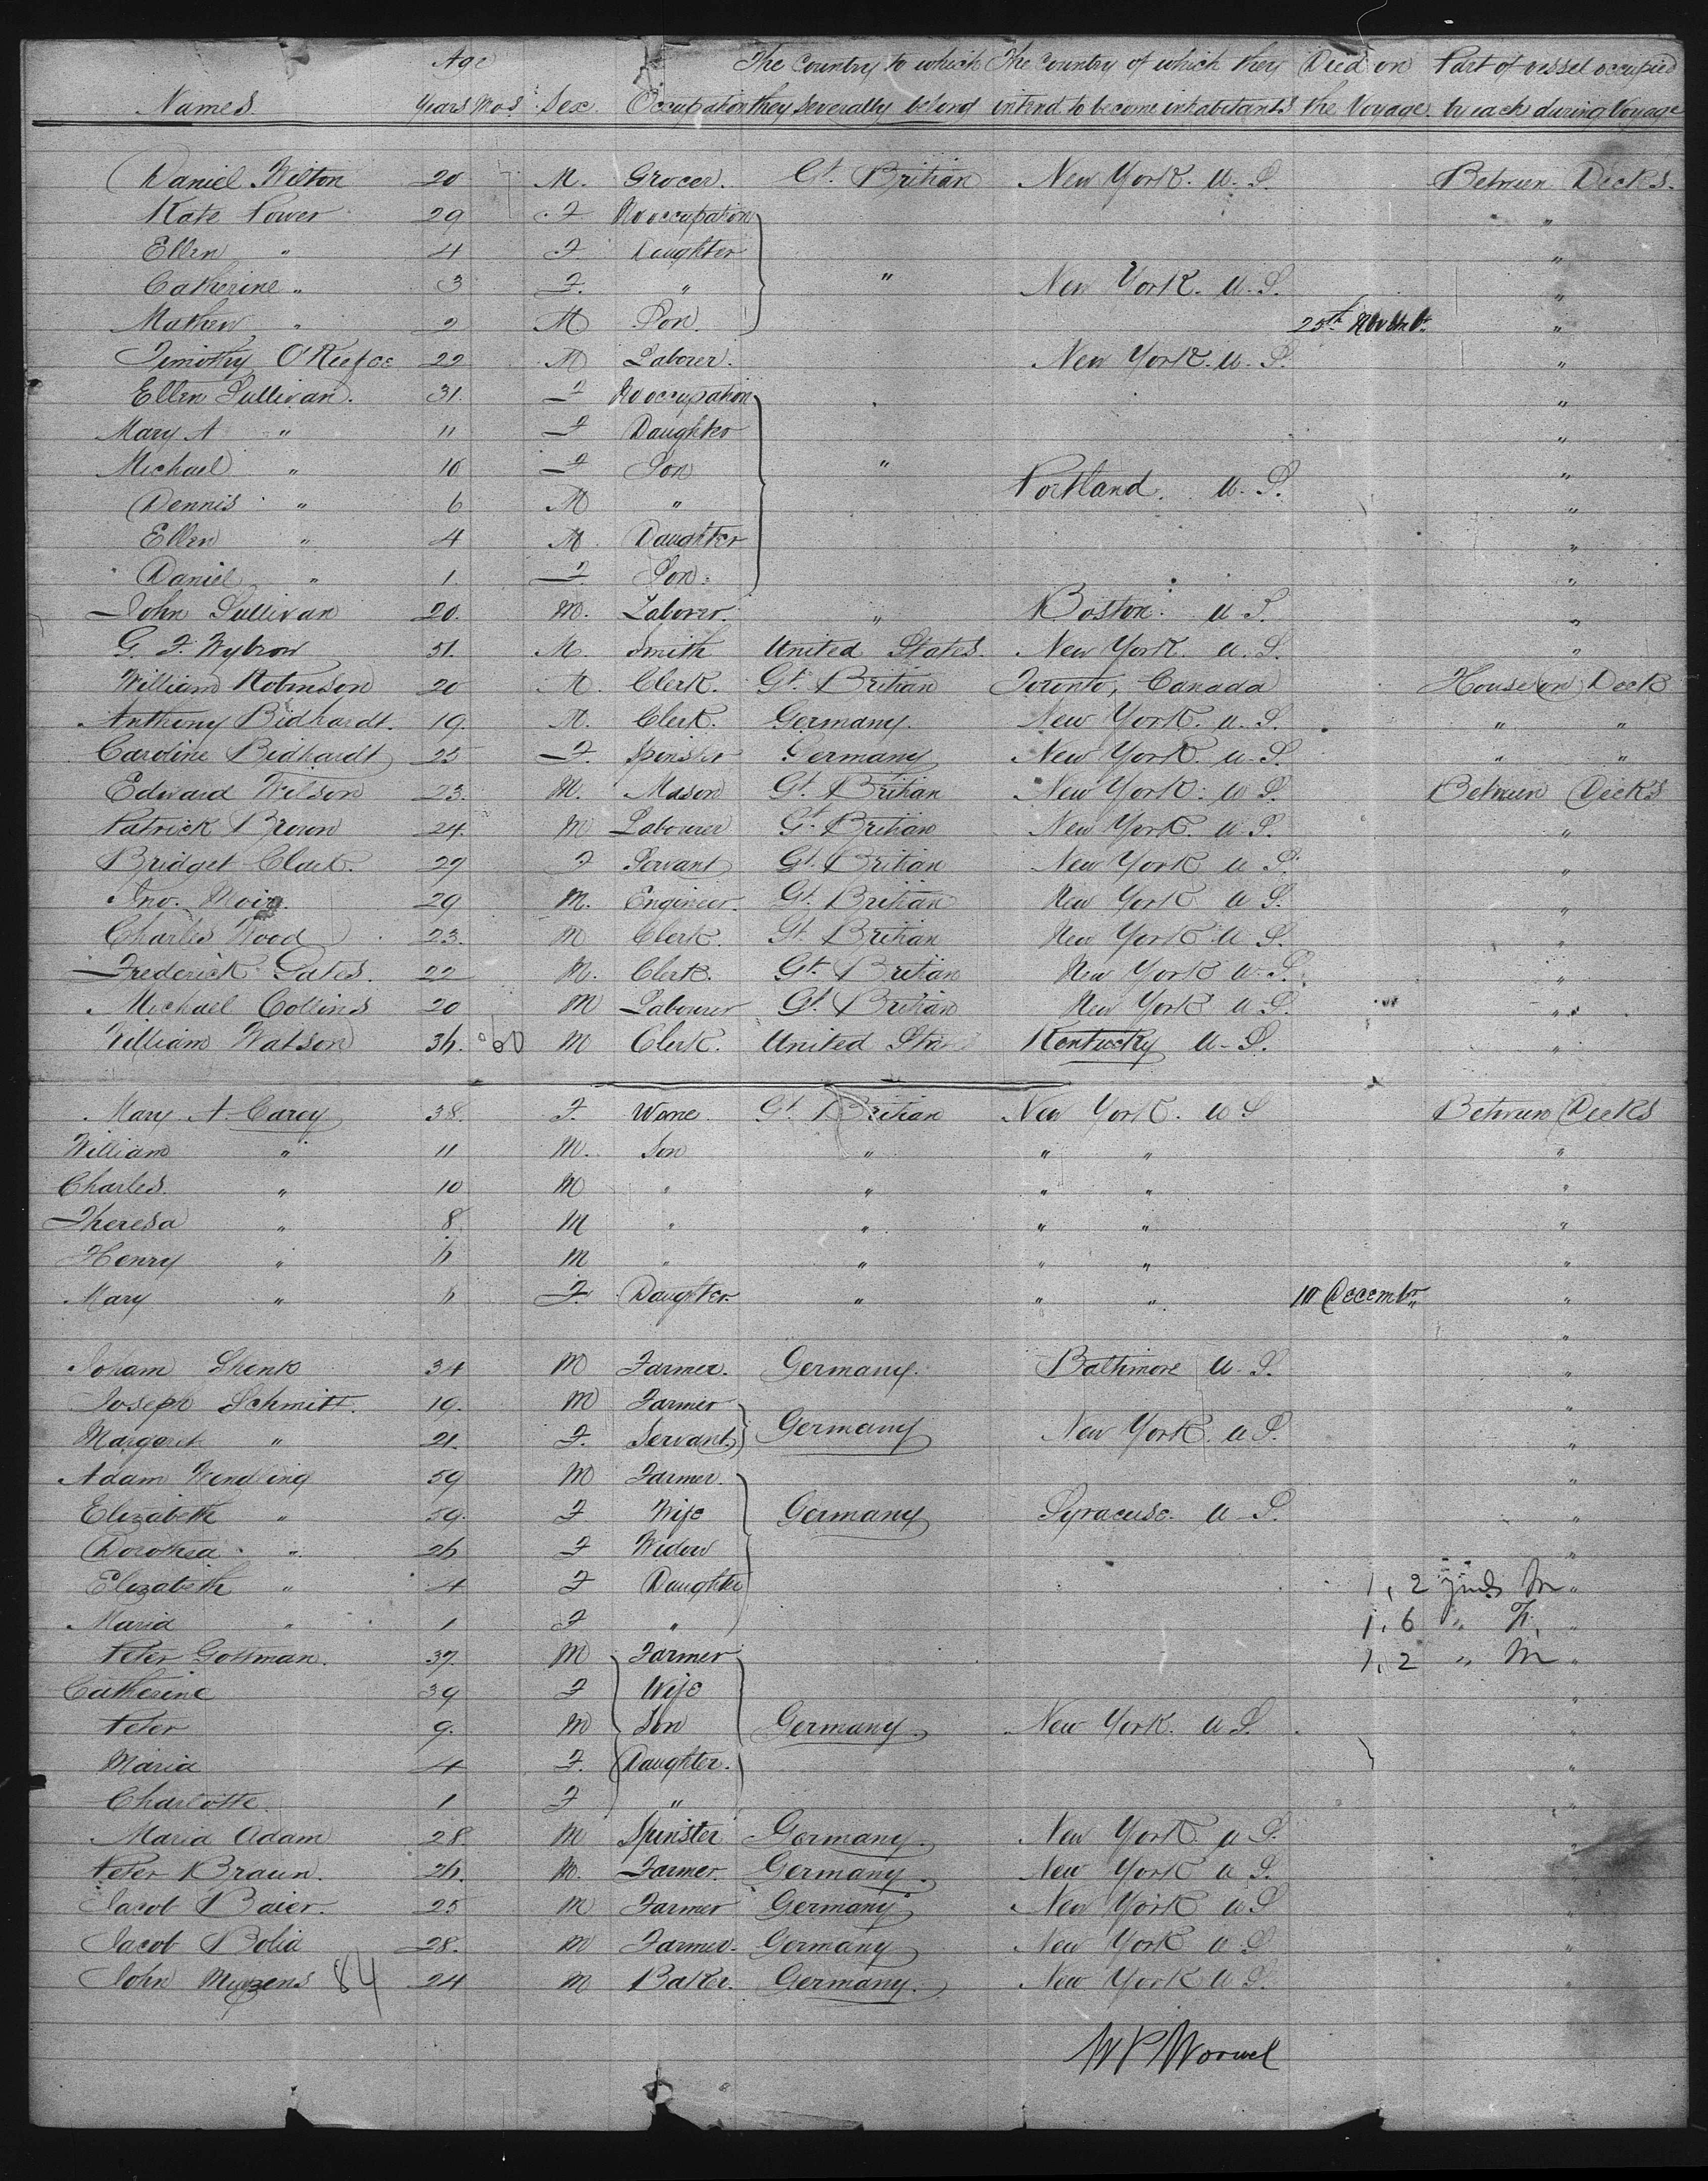 Age The Country to which The Country of which they Died on Part of vessel occupied
Names. Years Mos. Sex. Occupation they severally belong intend to become inhabitants the Voyage by each during Voyage
Daniel Wilton 20 M. Grocer. Gt. Britian New York. U.S. Between Decks.
Kate Power 29 F No occupation "
Ellen " 4 F. Daughter "
Catherine " 3 F. " " New York. U.S. "
Mathew " 2 M Son 25th Novemb. "
Timothy O'Keefee 22 M Laborer. New York. U.S. "
Ellen Sullivan. 31. F No occupation "
Mary A " 11 F Daughter "
Michael " 10 F Son " "
Portland. U.S.
Dennis " 6 M " "
Ellen " 4 M Daughter "
Daniel " 1 F Son. "
John Sullivan 20. M. Laborer. " Boston. U.S. "
G. F. Wybrow 51. M. Smith United States. New York. U.S. "
William Robinson 20 M. Clerk. Gt. Britian Toronto, Canada House on Deck
Anthony Bidhardt. 19. M. Clerk. Germany. New York. U.S. " "
Caroline Bidhardt 25 F. Spinster Germany New York. U.S. " "
Edward Wilson 23. M. Mason Gt. Britian New York. U.S. Between Decks
Patrick Brown 24. M Labourer Gt. Britian New York. U.S. "
Bridget Clark. 27 F Servant Gt. Britian New York U.S. "
Jno. Moir. 29 M. Engineer. Gt. Britian New York U.S. "
Charles Wood 23. M Clerk. Gt. Britian New York U.S. "
Frederick Gates. 22 M. Clerk. Gt. Britian New York U.S. "
Michael Collins 20 M Labourer Gt. Britian New York U.S. "
William Watson 36. M Clerk. United Sta Kentucky U.S. "
Mary A Carey 38. F. Gt. Britian New York. U.S. Between Decks
William " 11 M. Son " " " "
Charles. " 10 M " " " " "
Theresa " 8 M " " " " "
Henry " 6 M " " " " "
Mary " 6 F. Daughter " " " 10 Decembr "
"
Johann Shenk 34 M Farmer. Germany. Baltimore U.S. "
Joseph Schmitt. 19. M Farmer "
Germany New York. U.S.
Margareh " 21. F. Servant "
Adam Wendling 59 M Farmer. "
Elizabeth " 59. F Wife Germany Syracuse. U.S. "
Dorothea " 26 F Widow "
Elizabeth " 4 F Daughter 1, 2 M "
Maria " 1 F " 1. 6 " F. "
Peter Gottman. 37. M Farmer 1, 2 " M "
Catherine 39 F Wife "
Peter 9. M Son Germany New York. U.S. "
Maria 4 F. Daughter. "
Charlotte. 1 F " "
Maria Adam 28. M Spinster Germany. New York U.S. "
Peter Braun. 26. M. Farmer. Germany. New York U.S. "
Jacob Baier. 25 M Farmer Germany New York U.S. "
Jacob Bolia 28. M Farmer. Germany New York U.S. "
John 84 24 M Baker. Germany. New York U.S. "